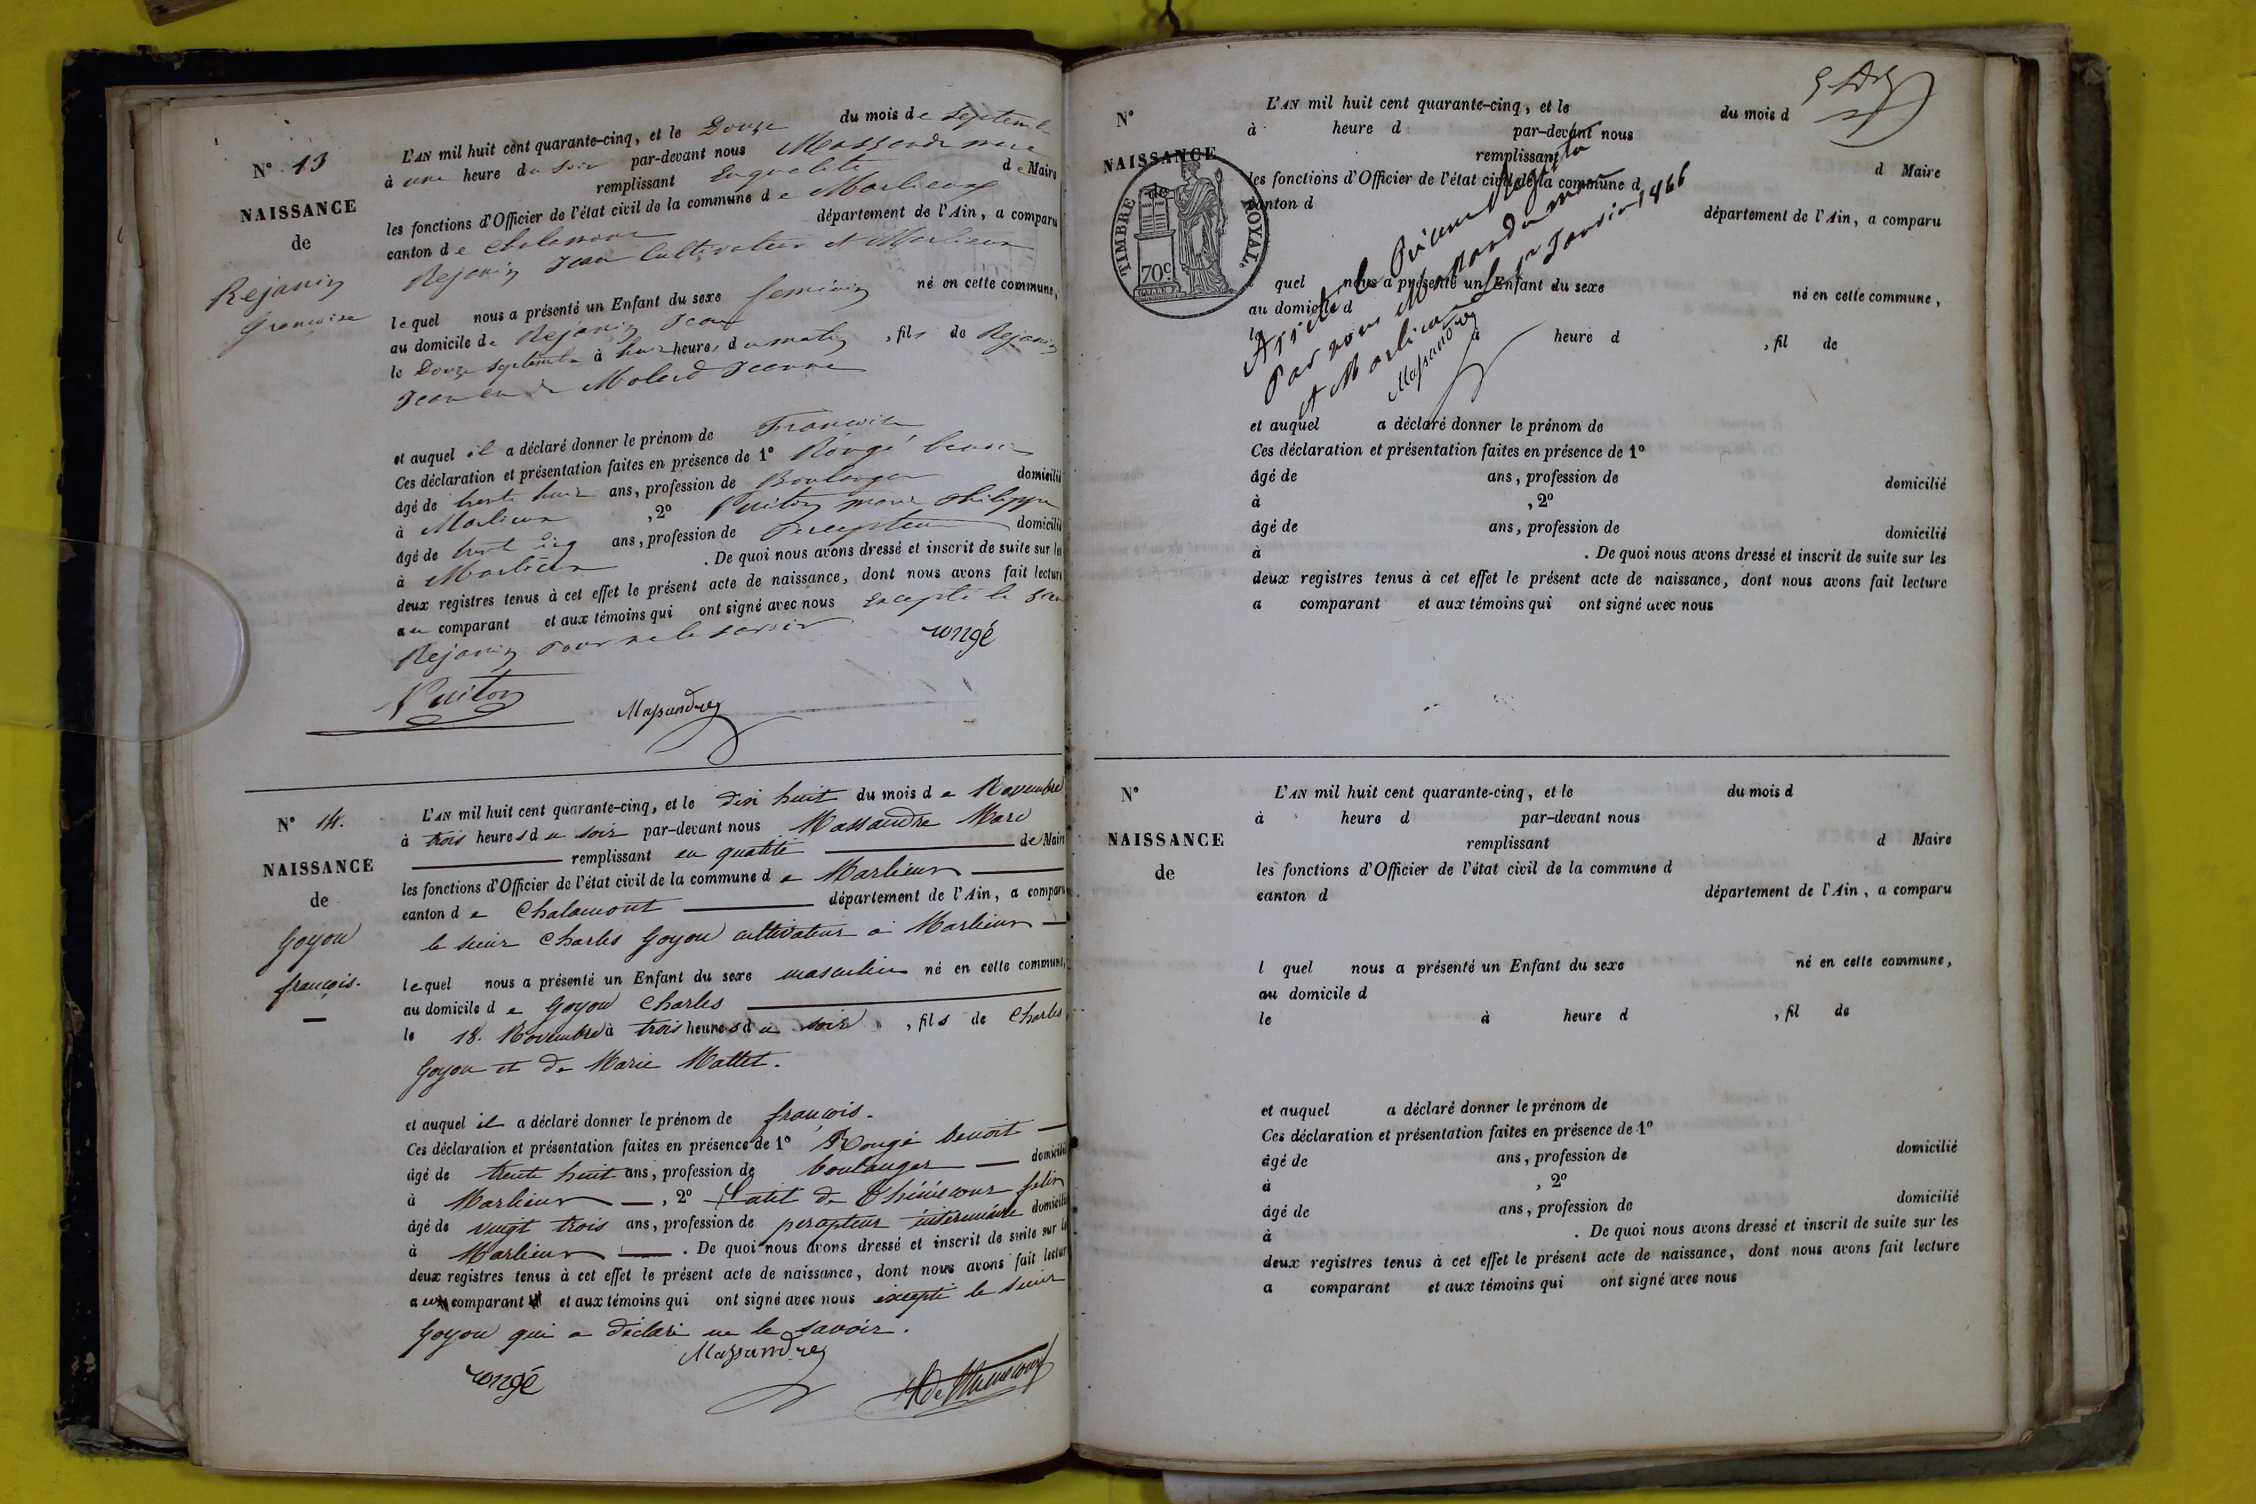 N° 13
NAISSANCE
de
Rejanin
francoise
L'AN mil huit cent quarante-cinq, et le Douze du mois de Septembre
à une heure du soir par-devant nous Massandre marc
remplissant En qualité de Maire
les fonctions d'Officier de l'état civil de la commune de Marlieux
canton de chalamont département de l'Ain, a comparu
Rejanin Jean Cultivateur à Marlieux
lequel nous a présenté un Enfant du sexe feminin né en cette commune,
au domicile de Rejanin Jean
le Douze septembre à huit heures du matin, fils de Rejanin
Jean et de Molard Jeanne
et auquel il a déclaré donner le prénom de Francoise
Ces déclaration et présentation faites en présence de 1° Rongé benoit
âgé de trente huit ans, profession de Boulanger domicilié
à Marlieux, 2° Vuiton marie philippe
âgé de trente cinq ans, profession de Percepteur domicilié
à Marlieux. De quoi nous avons dressé et inscrit de suite sur les
deux registres tenus à cet effet le présent acte de naissance, dont nous avons fait lecture
au comparant et aux témoins qui ont signé avec nous Excepté le Jean
Rejanin pour ne le savoir
rongé
Vuiton
Massandre
N° 14.
NAISSANCE
de
Goyon
françois.
L'AN mil huit cent quarante-cinq, et le dix huit du mois de Novembre
à trois heures du soir par-devant nous Massandre Marc
remplissant en qualité de Maire
les fonctions d'Officier de l'état civil de la commune de Marlieux
canton de Chalamont département de l'Ain, a comparu
le sieur Charles Goyon cultivateur à Marlieux
lequel nous a présenté un Enfant du sexe masculin né en cette commune,
au domicile de Goyon Charles
le 18. Novembre à trois heures du soir, fils de Charles
Goyon et de Marie Mattet.
et auquel il a déclaré donner le prénom de françois.
Ces déclaration et présentation faites en présence de 1° Rongé benoit
âgé de trente huit ans, profession de boulanger domicilié
à Marlieux, 2° Patit de Théniscour felix
âgé de vingt trois ans, profession de percepteur intérimaire domicilié
à Marlieux. De quoi nous avons dressé et inscrit de suite sur les
deux registres tenus à cet effet le présent acte de naissance, dont nous avons fait lecture
au comparant et aux témoins qui ont signé avec nous excepté le sieur
Goyon qui a déclaré ne le savoir.
Massandre
rongé
N°
NAISSANCE
de
TIMBRE ROYAL.
70c.
L'AN mil huit cent quarante-cinq, et le du mois d
à heure d par-devant nous
remplissant d Maire
les fonctions d'Officier de l'état civil de la commune d
canton d département de l'Ain, a comparu
l quel nous a présenté un Enfant du sexe né en cette commune,
au domicile d
le à heure d, fil de
Arrêté le Présent Registre
Par nous Massandre maire
à Marlieux le 1er Janvier 1846
Massandre
et auquel a déclaré donner le prénom de
Ces déclaration et présentation faites en présence de 1°
âgé de ans, profession de domicilié
à, 2°
âgé de ans, profession de domicilié
à. De quoi nous avons dressé et inscrit de suite sur les
deux registres tenus à cet effet le présent acte de naissance, dont nous avons fait lecture
a comparant et aux témoins qui ont signé avec nous
N°
NAISSANCE
de
L'AN mil huit cent quarante-cinq, et le du mois d
à heure d par-devant nous
remplissant d Maire
les fonctions d'Officier de l'état civil de la commune d
canton d département de l'Ain, a comparu
l quel nous a présenté un Enfant du sexe né en cette commune,
au domicile d
le à heure d, fil de
et auquel a déclaré donner le prénom de
Ces déclaration et présentation faites en présence de 1°
âgé de ans, profession de domicilié
à, 2°
âgé de ans, profession de domicilié
à. De quoi nous avons dressé et inscrit de suite sur les
deux registres tenus à cet effet le présent acte de naissance, dont nous avons fait lecture
a comparant et aux témoins qui ont signé avec nous